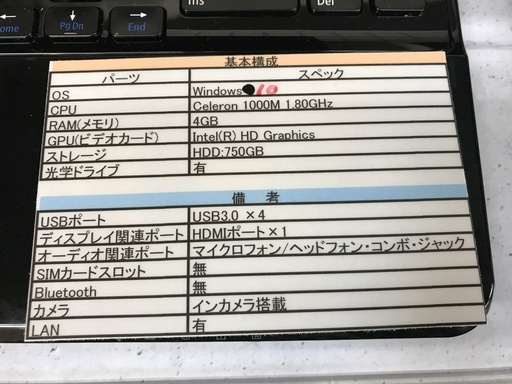 Home
PgDn
End
Ins
Del
基本構成
パーツ スペック
OS Windows 10
CPU Celeron 1000M 1.80GHz
RAM(メモリ) 4GB
GPU(ビデオカード) Intel(R) HD Graphics
ストレージ HDD:750GB
光学ドライブ 有
備 考
USBポート USB3.0 ×4
ディスプレイ関連ポート HDMIポート×1
オーディオ関連ポート マイクロフォン/ヘッドフォン・コンボ・ジャック
SIMカードスロット 無
Bluetooth 無
カメラ インカメラ搭載
LAN 有